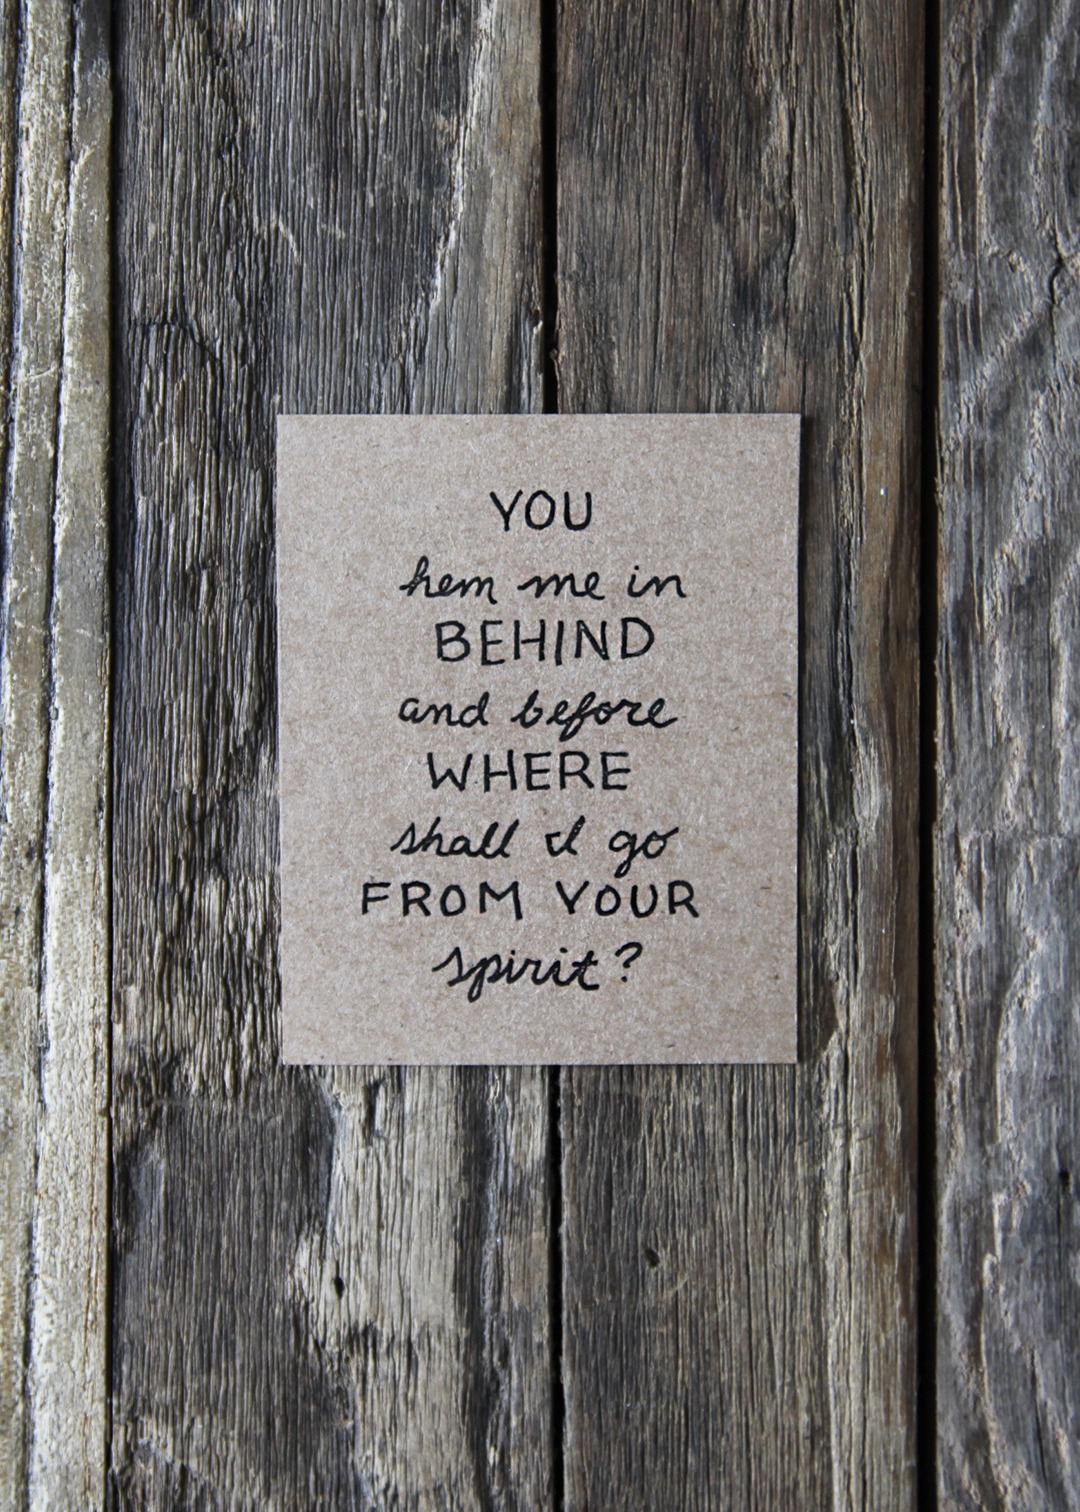 YOU
hem me in
BEHIND
and before
WHERE
shall I go
FROM YOUR
spirit?